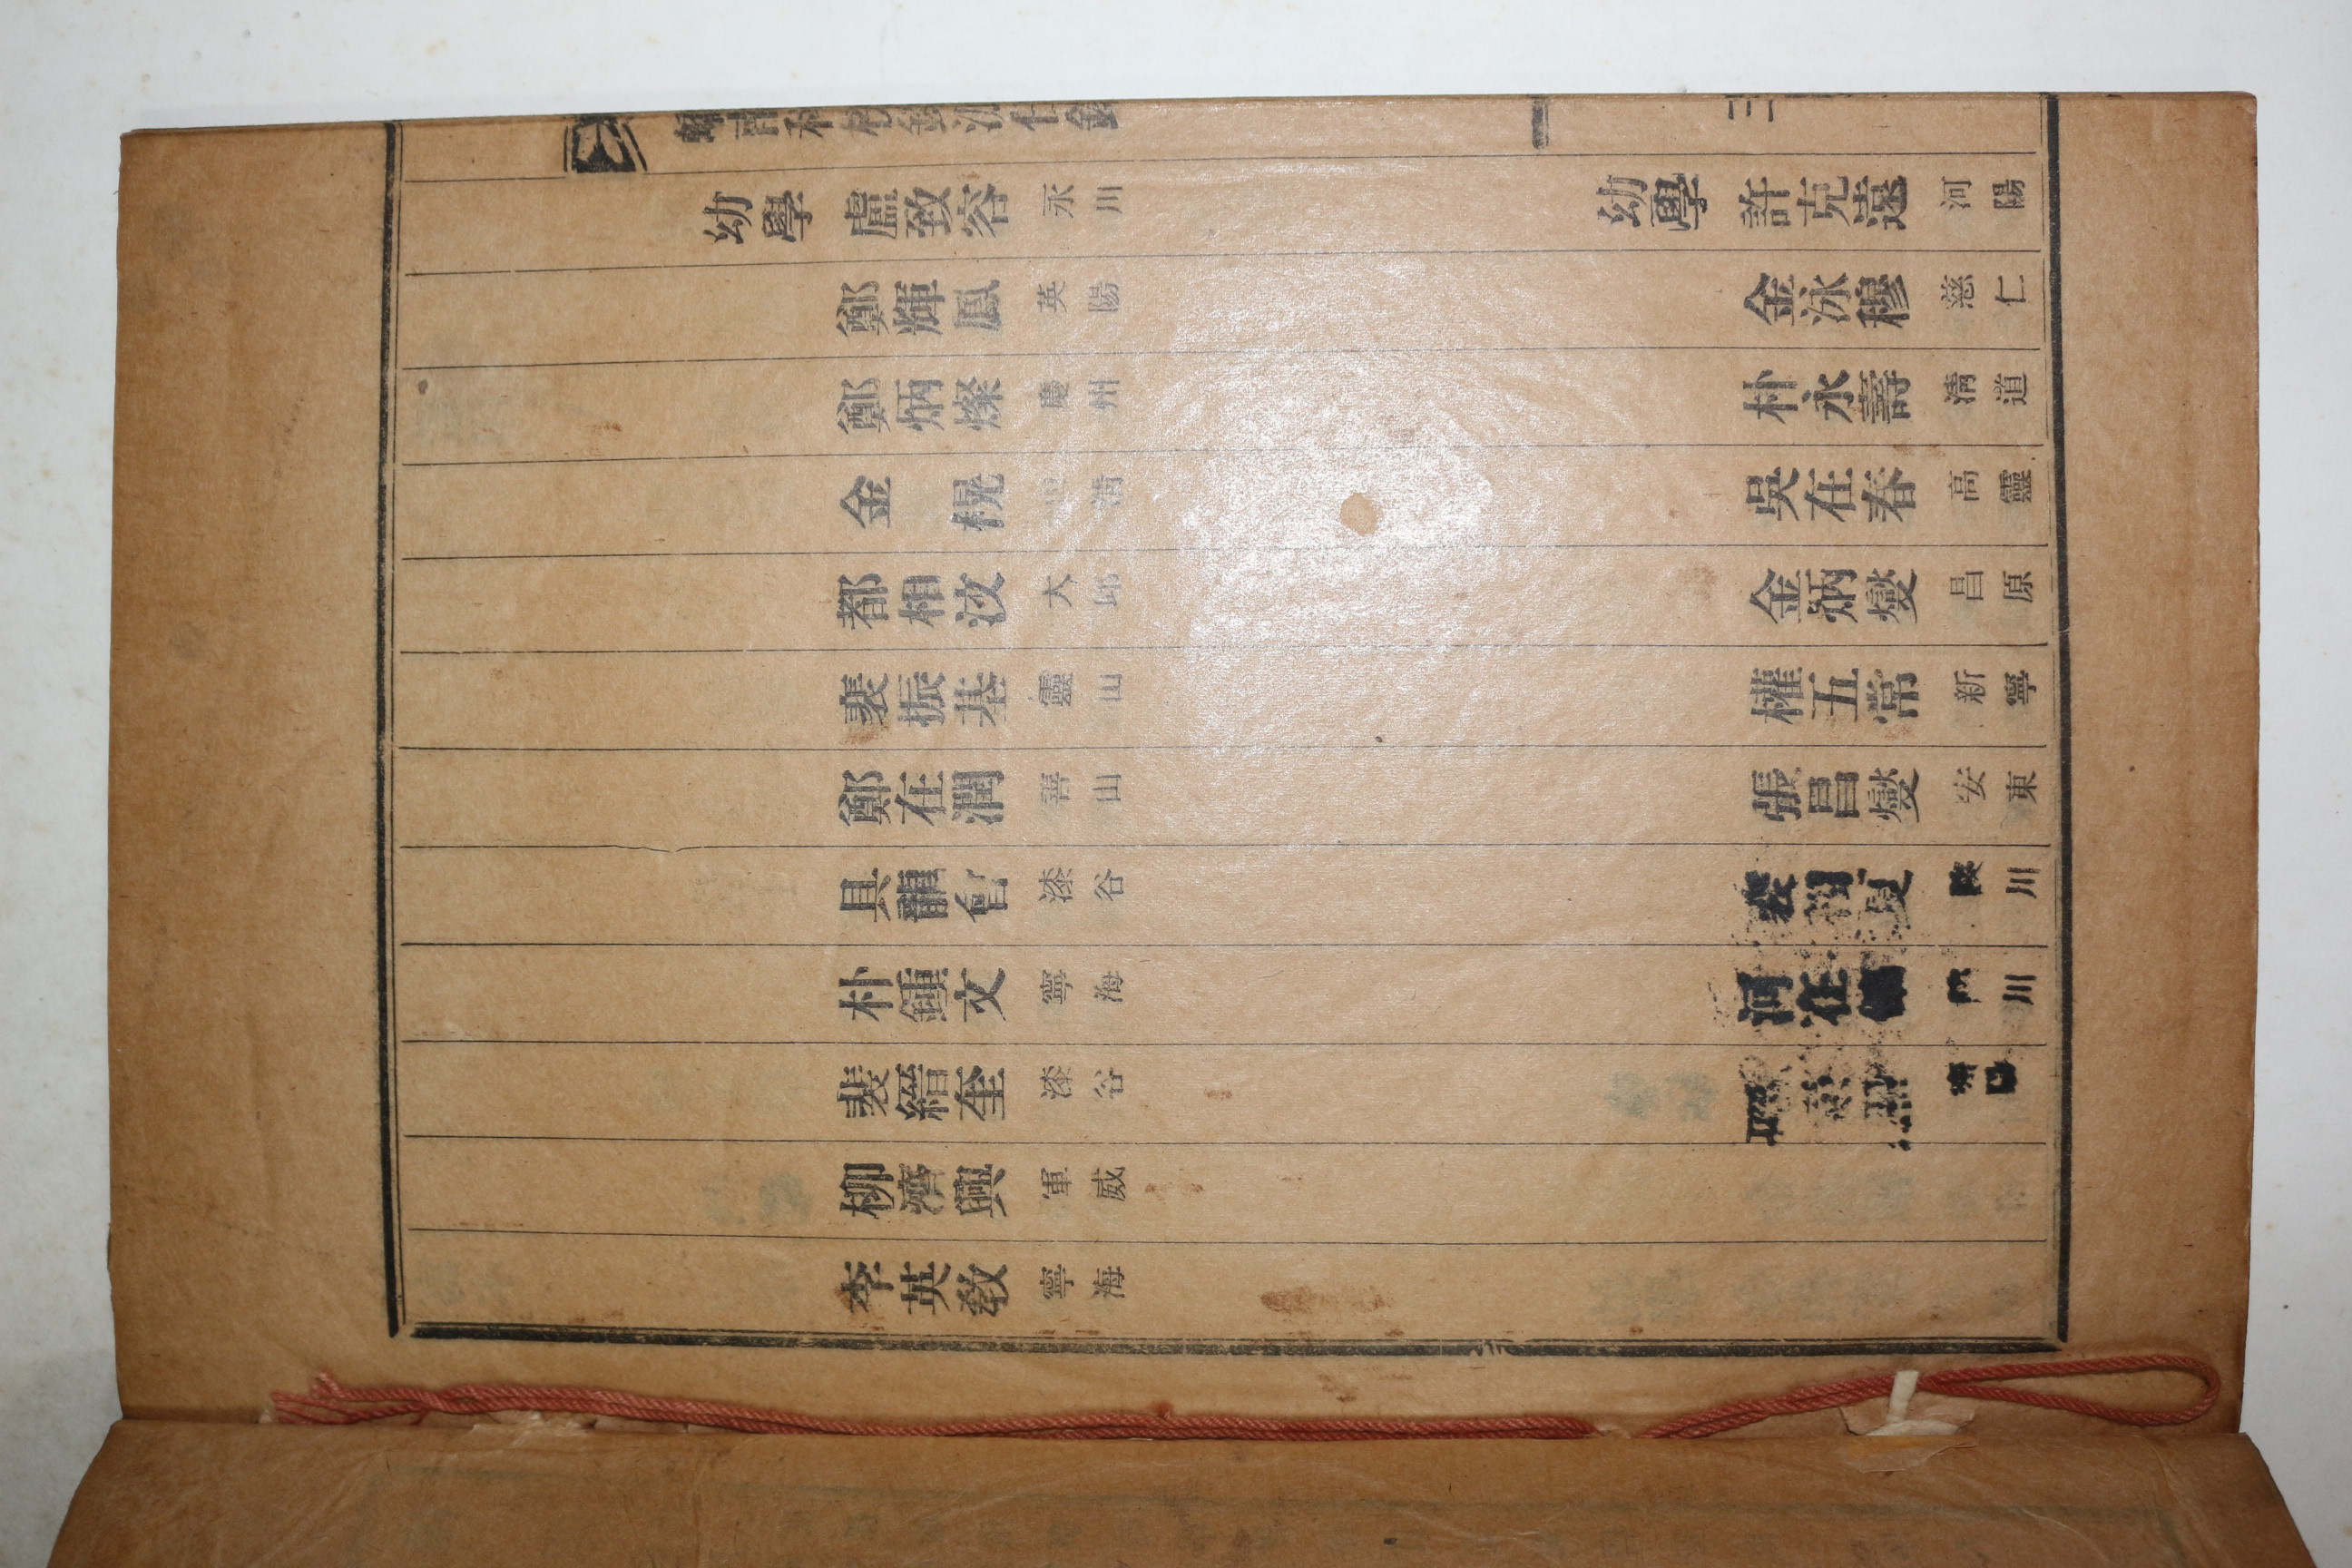 幼學 盧致容 永川
鄭輝鳳 英陽
鄭炳燦 慶州
金 榥
都相汶 大邱
裴振基 靈山
鄭在潤 善山
具龍會 漆谷
朴鍾文 寧海
裴縉奎 漆谷
柳濟興 軍威
李英敎 寧海
幼學 許克遠 河陽
金泳穆 慈仁
朴永壽 淸道
吳在春 高靈
金炳燮 昌原
權五常 新寧
張昌燮 安東
川
河在 川